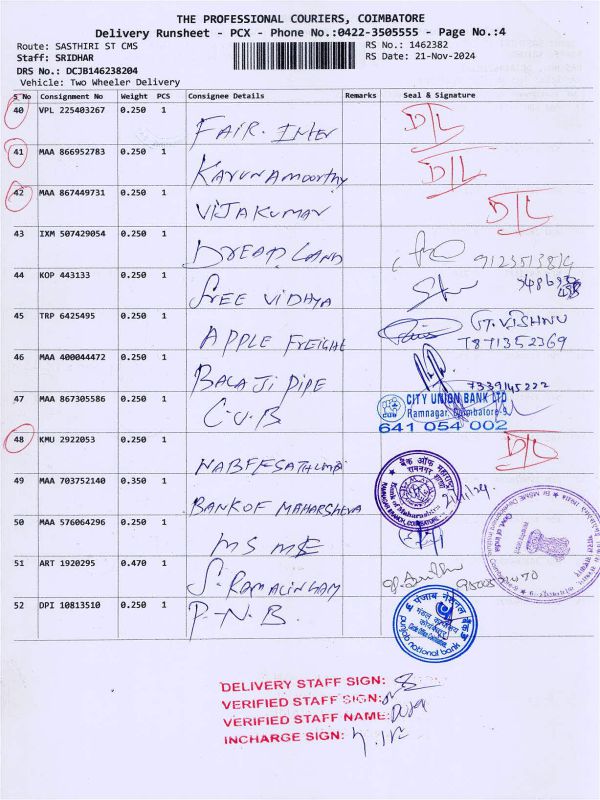 THE PROFESSIONAL COURIERS, COIMBATORE
Delivery Runsheet - PCX - Phone No.:0422-3505555 - Page No.:4
Route: SASTHIRI ST CMS
RS No.: 1462382
Staff: SRIDHAR
RS Date: 21-Nov-2024
DRS No.: DCJB146238204
Vehicle: Two Wheeler Delivery
S No Consignment No Weight PCS Consignee Details Remarks Seal & Signature
40 VPL 225403267 0.250 1 FAIR. INTER D/L
41 MAA 866952783 0.250 1 KARUNAMOORTHY D/L
42 MAA 867449731 0.250 1 VIJAKUMAR D/L
43 IXM 507429054 0.250 1 DREAD LAND
44 KOP 443133 0.250 1 SREE VIDHYA
45 TRP 6425495 0.250 1 APPLE FREIGHT VISHNU
7871352369
46 MAA 400044472 0.250 1 BALAJI PIPE
7339145222
47 MAA 867305586 0.250 1 C-U.B CITY UNION BANK LTD
Ramnagar, Coimbatore-9
641 054 002
48 KMU 2922053 0.250 1 D/L
49 MAA 703752140 0.350 1 BANK OF MAHARSHEVA
बैंक ऑफ महाराष्ट्र
Bank of Maharashtra
RAMNAGAR BRANCH, COIMBATORE
50 MAA 576064296 0.250 1 MSME
Govt. of India
भारत सरकार
51 ART 1920295 0.470 1 S. RAMALINGAM
52 DPI 10813510 0.250 1 P-N.B.
पंजाब नैशनल बैंक
punjab national bank
DELIVERY STAFF SIGN:
VERIFIED STAFF SIGN:
VERIFIED STAFF NAME:
INCHARGE SIGN: